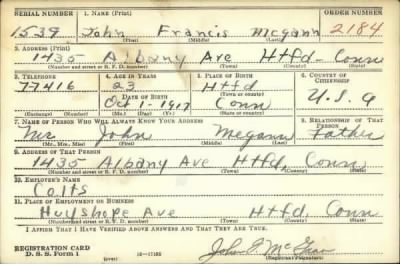 SERIAL NUMBER 1. NAME (Print) ORDER NUMBER
1539 John Francis McGann 2184
(First) (Middle) (Last)
2. ADDRESS (Print)
1435 Albany Ave Htfd- Conn
(Number and street or R. F. D. number) (Town) (County) (State)
3. TELEPHONE 4. AGE IN YEARS 5. PLACE OF BIRTH 6. COUNTRY OF CITIZENSHIP
7-7416 23 Htfd
DATE OF BIRTH (Town or county)
Oct 1-1917 Conn U.S.A
(Exchange) (Number) (Mo.) (Day) (Yr.) (State or country)
7. NAME OF PERSON WHO WILL ALWAYS KNOW YOUR ADDRESS 8. RELATIONSHIP OF THAT PERSON
Mr. John McGann Father
(Mr., Mrs., Miss) (First) (Middle) (Last)
9. ADDRESS OF THAT PERSON
1435 Albany Ave Htfd. Conn
(Number and street or R. F. D. number) (Town) (County) (State)
10. EMPLOYER'S NAME
Colts
11. PLACE OF EMPLOYMENT OR BUSINESS
Huyshope Ave Htfd. Conn
(Number and street or R. F. D. number) (Town) (County) (State)
I AFFIRM THAT I HAVE VERIFIED ABOVE ANSWERS AND THAT THEY ARE TRUE.
REGISTRATION CARD
D. S. S. Form 1 (over) 16-17105 (Registrant's signature)